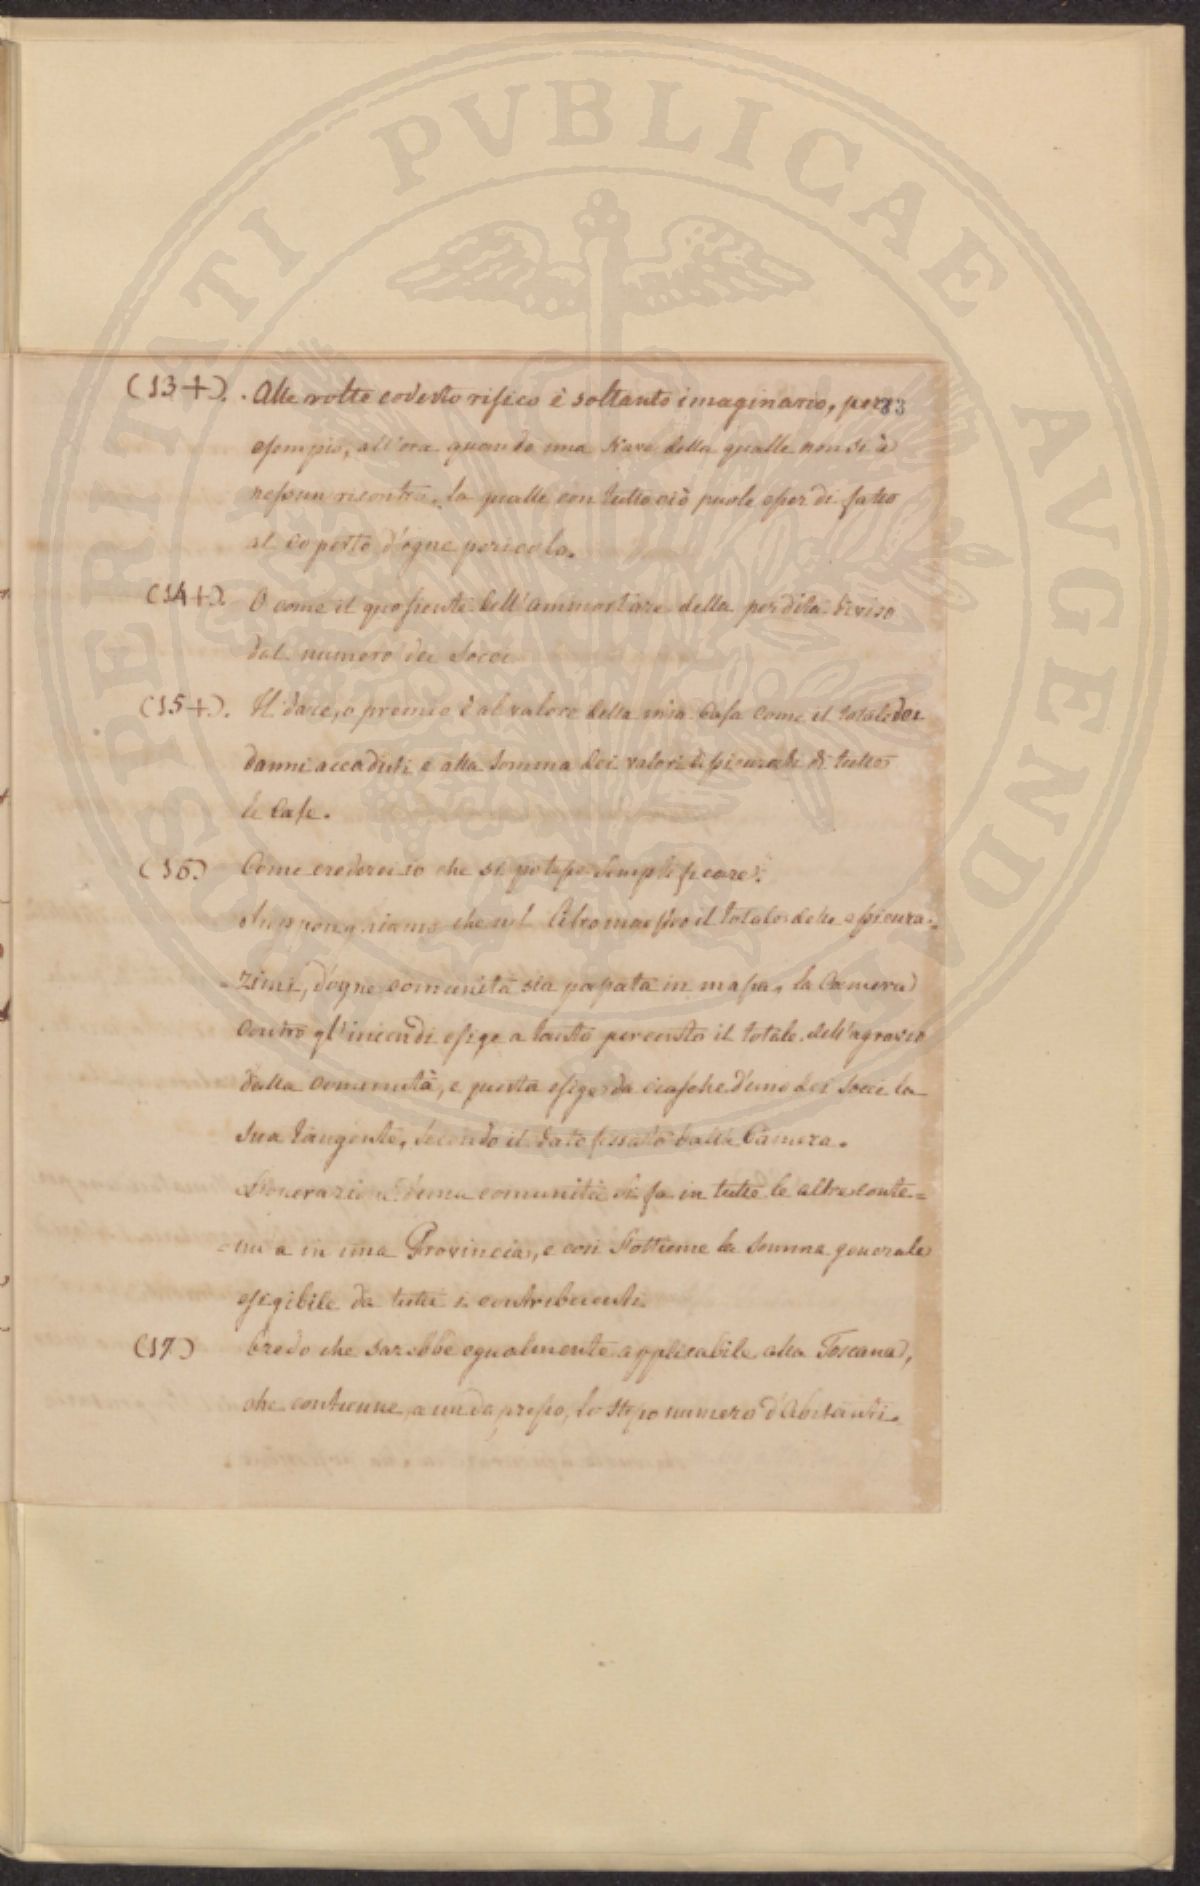 PROSPERITATI PVBLICAE AVGENDAE
83
(13+). Alle volte codesto risico è soltanto imaginario, per
esempio, all'ora quando una Nave della qualle non si à
nessun riscontro, la qualle con tutto ciò puole esser di fatto
al coperto d'ogne pericolo.
(14+). O come il quoziente dell'ammontare della perdita diviso
dal numero dei Socci
(15+). Il dare, o premio è al valore della mia Casa come il totale dei
danni accaduti è alla somma dei valori assicurati di tutte
le Case.
(16) Come crederei io che si potesse semplificare?
Supponghiamo che nel Libro maestro il totale delle assicura-
-zioni, d'ogne comunità sia passata in massa, la Camera
contro gl'incendi esige a tanto per cento il totale dell'agravio
dalla comunità, e questa esige da ciasched'uno dei Socci la
sua tangente, secondo il dato fissato dalla Camera.
L'operazione d'una comunità si fa in tutte le altre conte-
=nute in una Provincia, e così s'ottiene la somma generale
esigibile da tutti i contribuenti.
(17) Credo che sarebbe egualmente applicabile alla Toscana,
che contienne, a un da presso, lo stesso numero d'Abitanti.